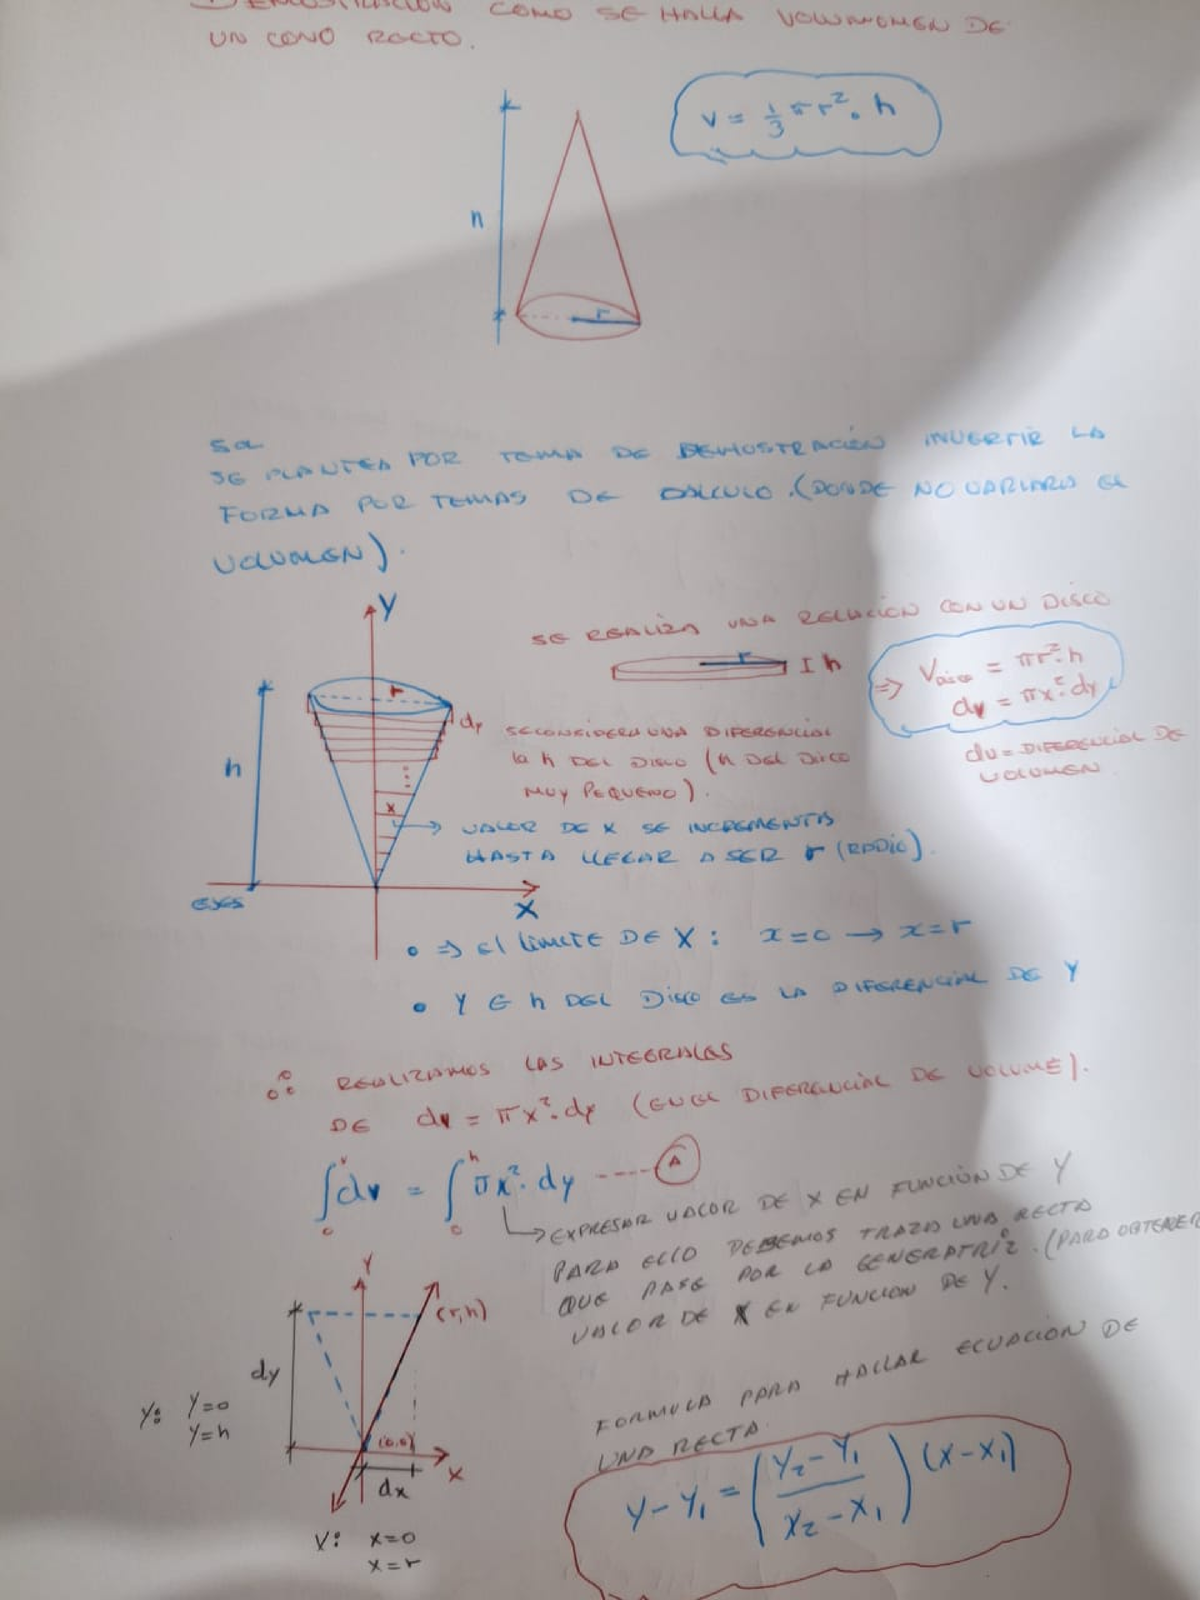 DEMOSTRACIÓN COMO SE HALLA VOLUMOMEN DE
UN CONO RECTO.
V = 1/3 π r². h
h
r
Sol
SE PLANTEA POR TEMA DE DEMOSTRACIÓN INVERTIR LA
FORMA POR TEMAS DE CALCULO. (DONDE NO VARIARA EL
VOLUMEN).
Y
SE REALIZA UNA RELACIÓN CON UN DISCO
r I h
⇒ Vdisco = πr².h
dv = πx².dy
r
dy
h
SE CONSIDERA UNA DIFERENCIAL
la h DEL DISCO (h DEL DISCO
MUY PEQUEÑO).
dv = DIFERENCIAL DE
VOLUMEN
x
→ VALOR DE X SE INCREMENTA
HASTA LLEGAR A SER r (RADIO).
EJES
X
• ⇒ El LIMITE DE X: x=0 → x=r
• Y E h DEL DISCO ES LA DIFERENCIAL DE Y
∴ REALIZAMOS LAS INTEGRALES
DE dv = πx².dy (EN EL DIFERENCIAL DE VOLUME).
∫₀ᵛ dv = ∫₀ʰ πx². dy ---- A
→ EXPRESAR VALOR DE X EN FUNCIÓN DE Y
PARA ELLO DEBEMOS TRAZA UNA RECTA
QUE PASE POR LA GENERATRIZ. (PARA OBTENER
VALOR DE X EN FUNCION DE Y.
Y
(r,h)
dy
Y: Y=0
Y=h
(0,0)
X
dx
X: x=0
x=r
FORMULA PARA HALLAR ECUACIÓN DE
UNA RECTA.
Y-Y₁ = (Y₂-Y₁ / X₂-X₁) (X-X₁)